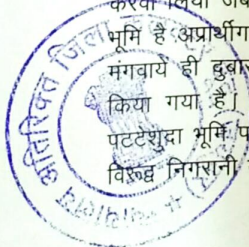 करवा लिया जब
भूमि है अप्रार्थीग
मंगवाये ही दुबार
किया गया है।
पटटेशुदा भूमि प
विरूद्व निगरानी
अतिरिक्त जिला